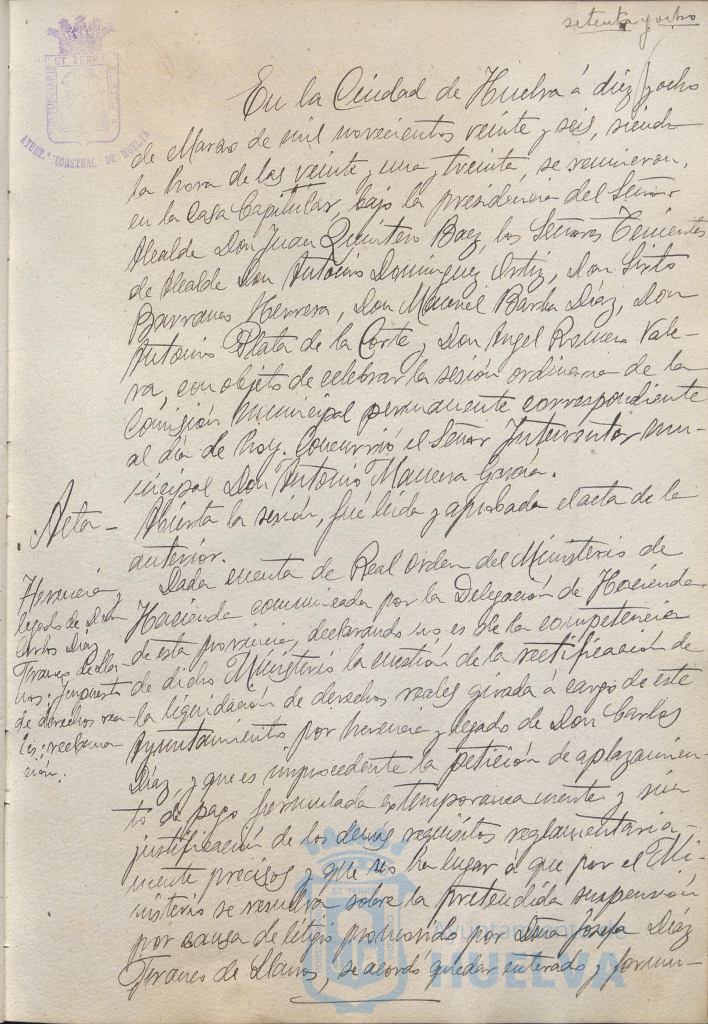 setenta y ocho
ET TERRE
AYUNT.º CONSTNAL. DE HUELVA
En la Ciudad de Huelva á diez y ocho
de Marzo de mil novecientos veinte y seis, siendo
la hora de las veinte y una y treinta, se reunieron,
en la Casa Capitular, bajo la presidencia del Señor
Alcalde Don Juan Quintero Baez, los Señores Tenientes
de Alcalde Don Antonio Dominguez Ortiz, Don Sixto
Barranco Herrera, Don Manuel Barba Díaz, Don
Antonio Plata de la Corte y Don Angel Romero Vale-
ra, con objeto de celebrar la sesión ordinaria de la
Comisión municipal permanente correspondiente
al día de hoy. Concurrió el Señor Interventor mu-
nicipal Don Antonio García.
Acta - Abierta la sesión, fué leida y aprobada el acta de la
anterior.
Herencia y
legado de Don
Carlos Díaz
Franco de Lla-
nos: Impuesto
de derechos rea-
les: reclama-
ción.
Dada cuenta de Real Orden del Ministerio de
Hacienda comunicada por la Delegación de Hacienda
de esta provincia, declarando no es de la competencia
de dicho Ministerio la cuestión de la rectificación de
la liquidación de derechos reales girada á cargo de este
Ayuntamiento por herencia y legado de Don Carlos
Díaz, y que es improcedente la petición de aplazamien-
to de pago formulada extemporaneamente y sin
justificación de los demás requisitos reglamentaria-
mente precisos y que no ha lugar á que por el Mi-
nisterio se resuelva sobre la pretendida suspensión
por causa de litigio promovido por Doña Josefa Díaz
Franco de Llanos, se acordó quedar enterado y formu-
ET TERRE
Ayuntamiento de
HUELVA